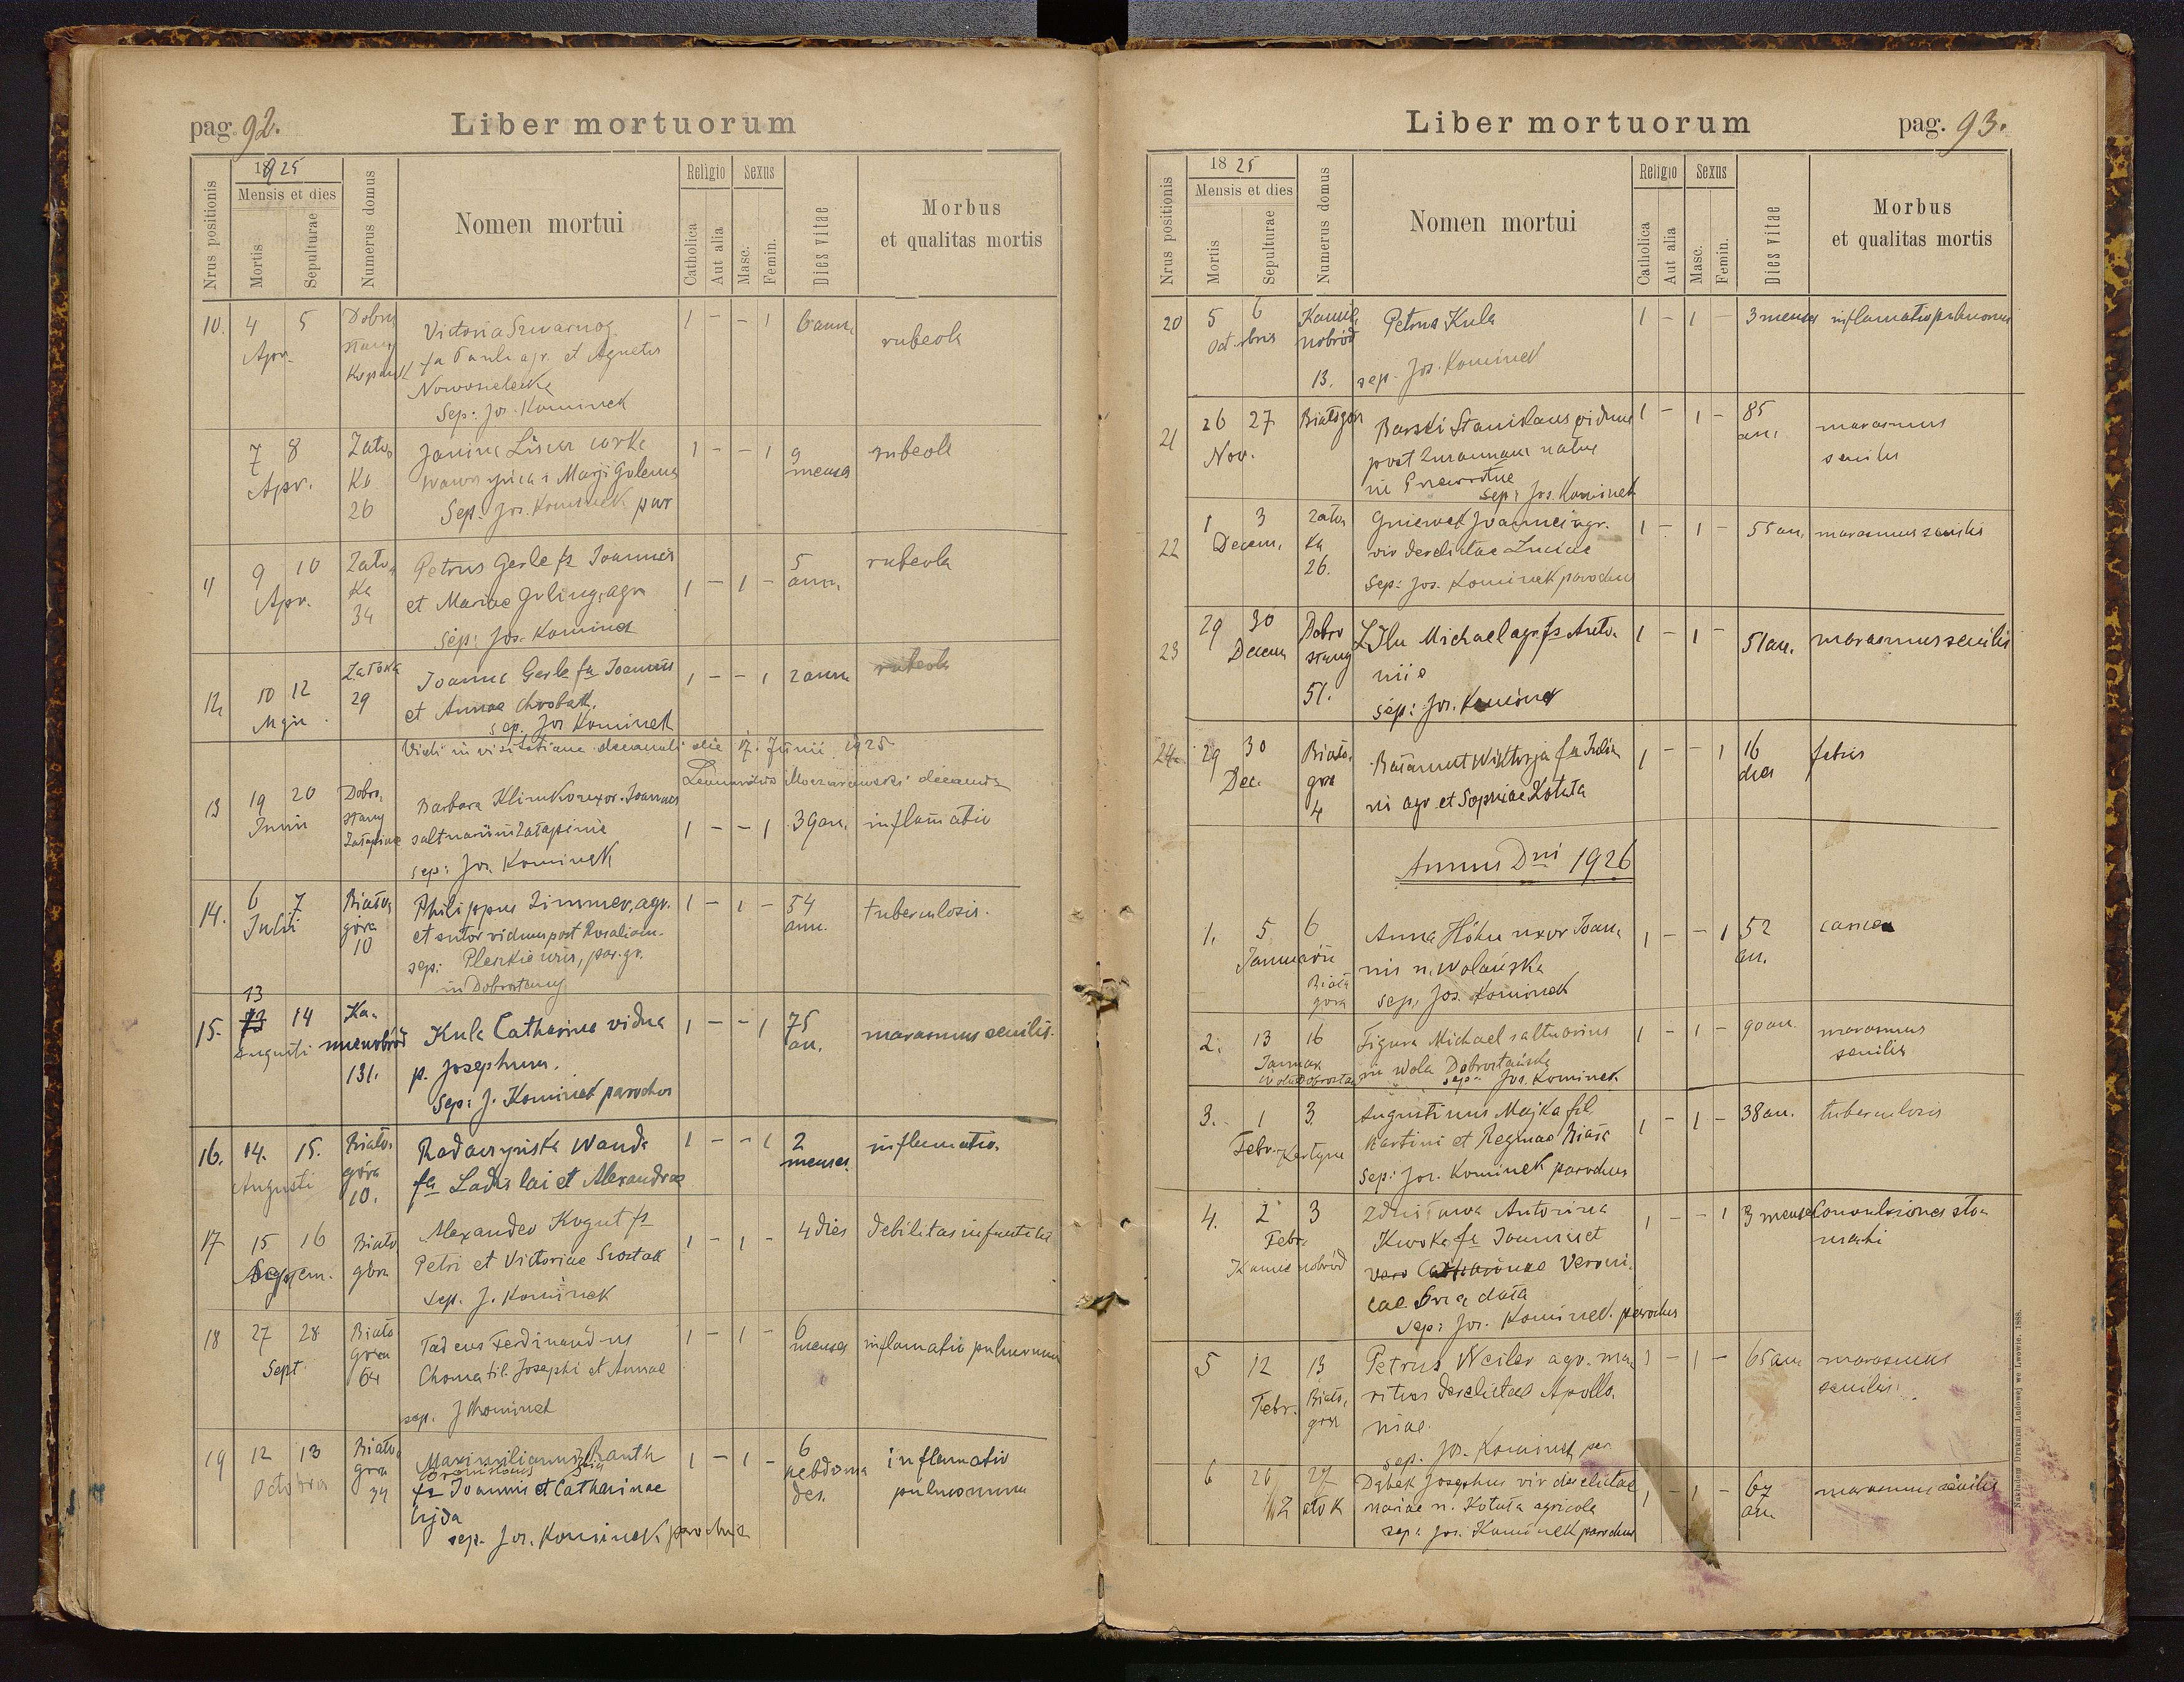 pag. 92.
Liber mortuorum
Nrus positionis
1925
Mensis et dies
Mortis
Sepulturae
Numerus domus
Nomen mortui
Religio
Catholica
Aut alia
Sexus
Masc.
Femin.
Dies vitae
Morbus
et qualitas mortis
10. 4 5 Apr.
Victoria
fa Pauli agr. et Agnetis
Sep: Jos. Kominek
1 - - 1 6 ann. rubeola
7 8 Apr. Zato Ka 26
Janina córka
i Marji Golema
Sep: Jos. Kominek par
1 - - 1 9 menses rubeola
11 9 10 Apr. Zato Ka 34
Petrus Gerle fs Joannes
et Mariae agr.
Sep: Jos. Kominek
1 - 1 - 5 ann. rubeola
12 10 12 Maji Zatoka 29
Joanna Gerle fa Joannis
et Annae Chrobak.
sep. Jos Kominek
1 - - 1 2 ann. rubeola
Vidi in visitatione decanali die 17. Junii 1925
decanus
13 19 20 Junii Dobro stany
Barbara Klimko uxor Joannis
sep: Jos. Kominek
1 - - 1 39 an. inflamatio
14. 6 7 Julii Biało góra 10
Philippus Zimmer, agr.
et sutor viduus post Rosaliam.
sep: par. gr.
in Dobrostany
1 - 1 - 54 ann. tuberculosis.
15. 13 14 Augusti Ka- mienobród 131.
Kula Catharina vidua
p. Josephum.
Sep: J. Kominek parochus
1 - - 1 75 an. marasmus senilis.
16. 14. 15. Augusti Biało góra 10.
Wanda
fa Ladislai et Alexandrae
1 - - 1 2 menses inflamatio
17 15 16 Septem. Biało góra
Alexander Kogut fs
Petri et Victoriae
sep. J. Kominek
1 - 1 - 4 dies debilitas infantilis
18 27 28 Sept. Biało góra 64
Tadeus Ferdinandus
Choma fil. Josephi et Annae
sep. J Kominek
1 - 1 - 6 menses inflamatio pulmonum
19 12 13 Octobris Biało góra 34
Maximilianus
fs Joannis et Catharinae
sep. Jos. Kominek parochus
1 - 1 - 6 hebdoma des. inflamatio
pulmonum
Liber mortuorum
pag. 93.
Nrus positionis
1825
Mensis et dies
Mortis
Sepulturae
Numerus domus
Nomen mortui
Religio
Catholica
Aut alia
Sexus
Masc.
Femin.
Dies vitae
Morbus
et qualitas mortis
20 5 6 Octobris Kamie nobród 13.
Petrus Kula
sep. Jos. Kominek
1 - 1 - 3 menses inflamatio pulmonum
21 26 27 Nov. Białogór
Barski Stanislaus viduus
post natus
in
Sep: Jos. Kominek
1 - 1 - 85 an. marasmus
senilis
22 1 3 Decem. Zato ka 26.
Gniewek Joannes agr.
vir derelictae Luciae
Sep: Jos. Kominek parochus
1 - 1 - 55 an. marasmus senilis
23 29 30 Decem Dobro stany 51.
Michael agr. fs Anto-
nii
sep: Jos. Kominek
1 - 1 - 51 an. marasmus senilis
24. 29 30 Dec. Biało góra 4
Wiktorja fa Julia
ni agr. et Sophiae Kotuła
1 - - 1 16 dies
Annus Dni 1926
1. 5 6 Januarii Biała góra
Anna Höhn uxor Joan-
nis n. Wolańska
sep. Jos. Kominek
1 - - 1 52 an. cancer
2. 13 16 Januar Wola Dobrosta
Figura Michael saltuarius
in Wola Dobrostańska
sep: Jos. Kominek
1 - 1 - 90 an. marasmus
senilis
3. 1 3 Febr.
Augustinus Majka fil.
Martini et Reginae
Sep: Jos. Kominek parochus
1 - 1 - 38 an. tuberculosis
4. 2 3 Febr. Kamienobród
Zdzisława Antonina
fa Joannis et
Veroni-
cae
sep: Jos. Kominek parochus
1 - - 1 3 menses Convulsiones sto-
machi
5 12 13 Febr. Biało góra
Petrus Weiler agr. ma-
ritus derelictae Apollo-
niae.
sep. Jos. Kominek par
1 - 1 - 65 an marasmus
senilis
6 26 27
Dąbek Josephus vir derelictae
Mariae n. Kotuła agricola
sep: Jos. Kominek parochus
1 - 1 - 67 an marasmus senilis
Nakładem Drukarni Ludowej we Lwowie. 1888.